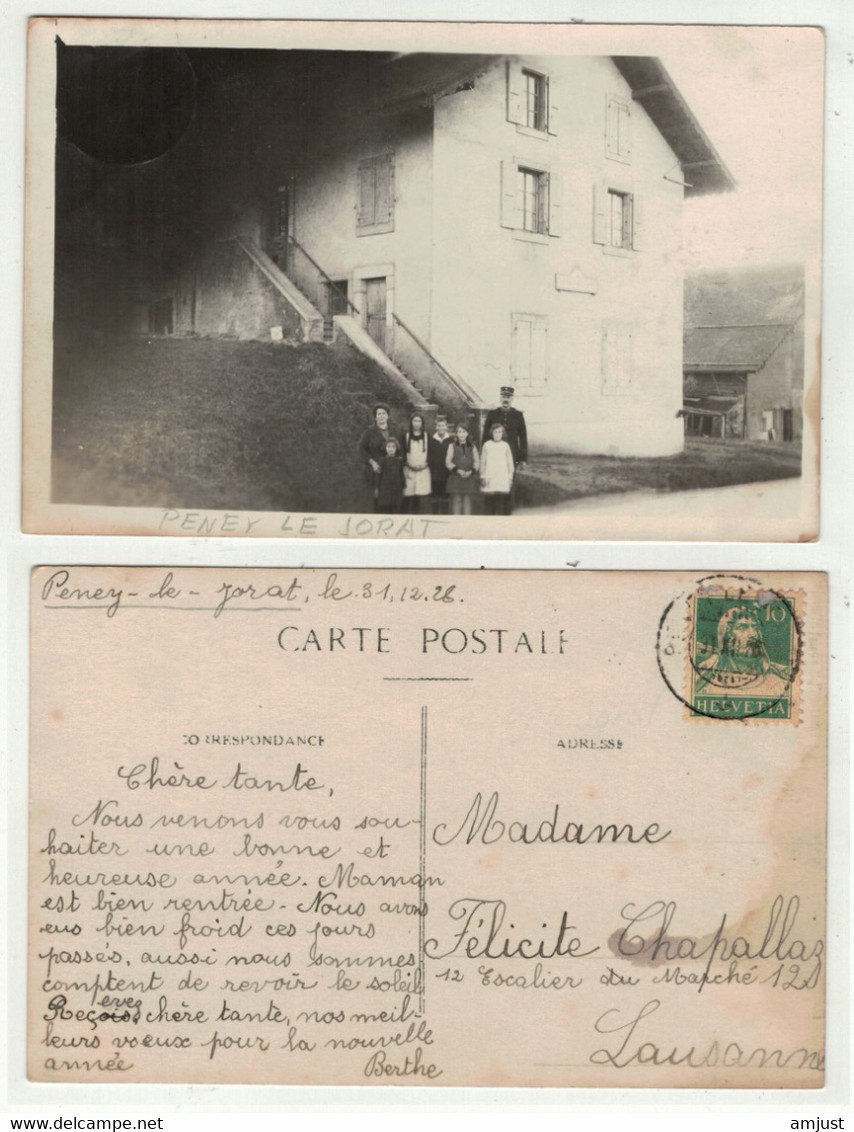 PENEY LE JORAT
Peney-le-Jorat, le 31.12.26.
CARTE POSTALE
HELVETIA
10
CORRESPONDANCE
ADRESSE
Chère tante,
Nous venons vous sou-
haiter une bonne et
heureuse année. Maman
est bien rentrée. Nous avons
eus bien froid ces jours
passés, aussi nous sommes
comptent de revoir le soleil
Reçevez chère tante, nos meil-
leurs voeux pour la nouvelle
année Berthe
Madame
Félicite Chapallaz
12 Escalier du Marché 12
Lausanne
amjust
amjust